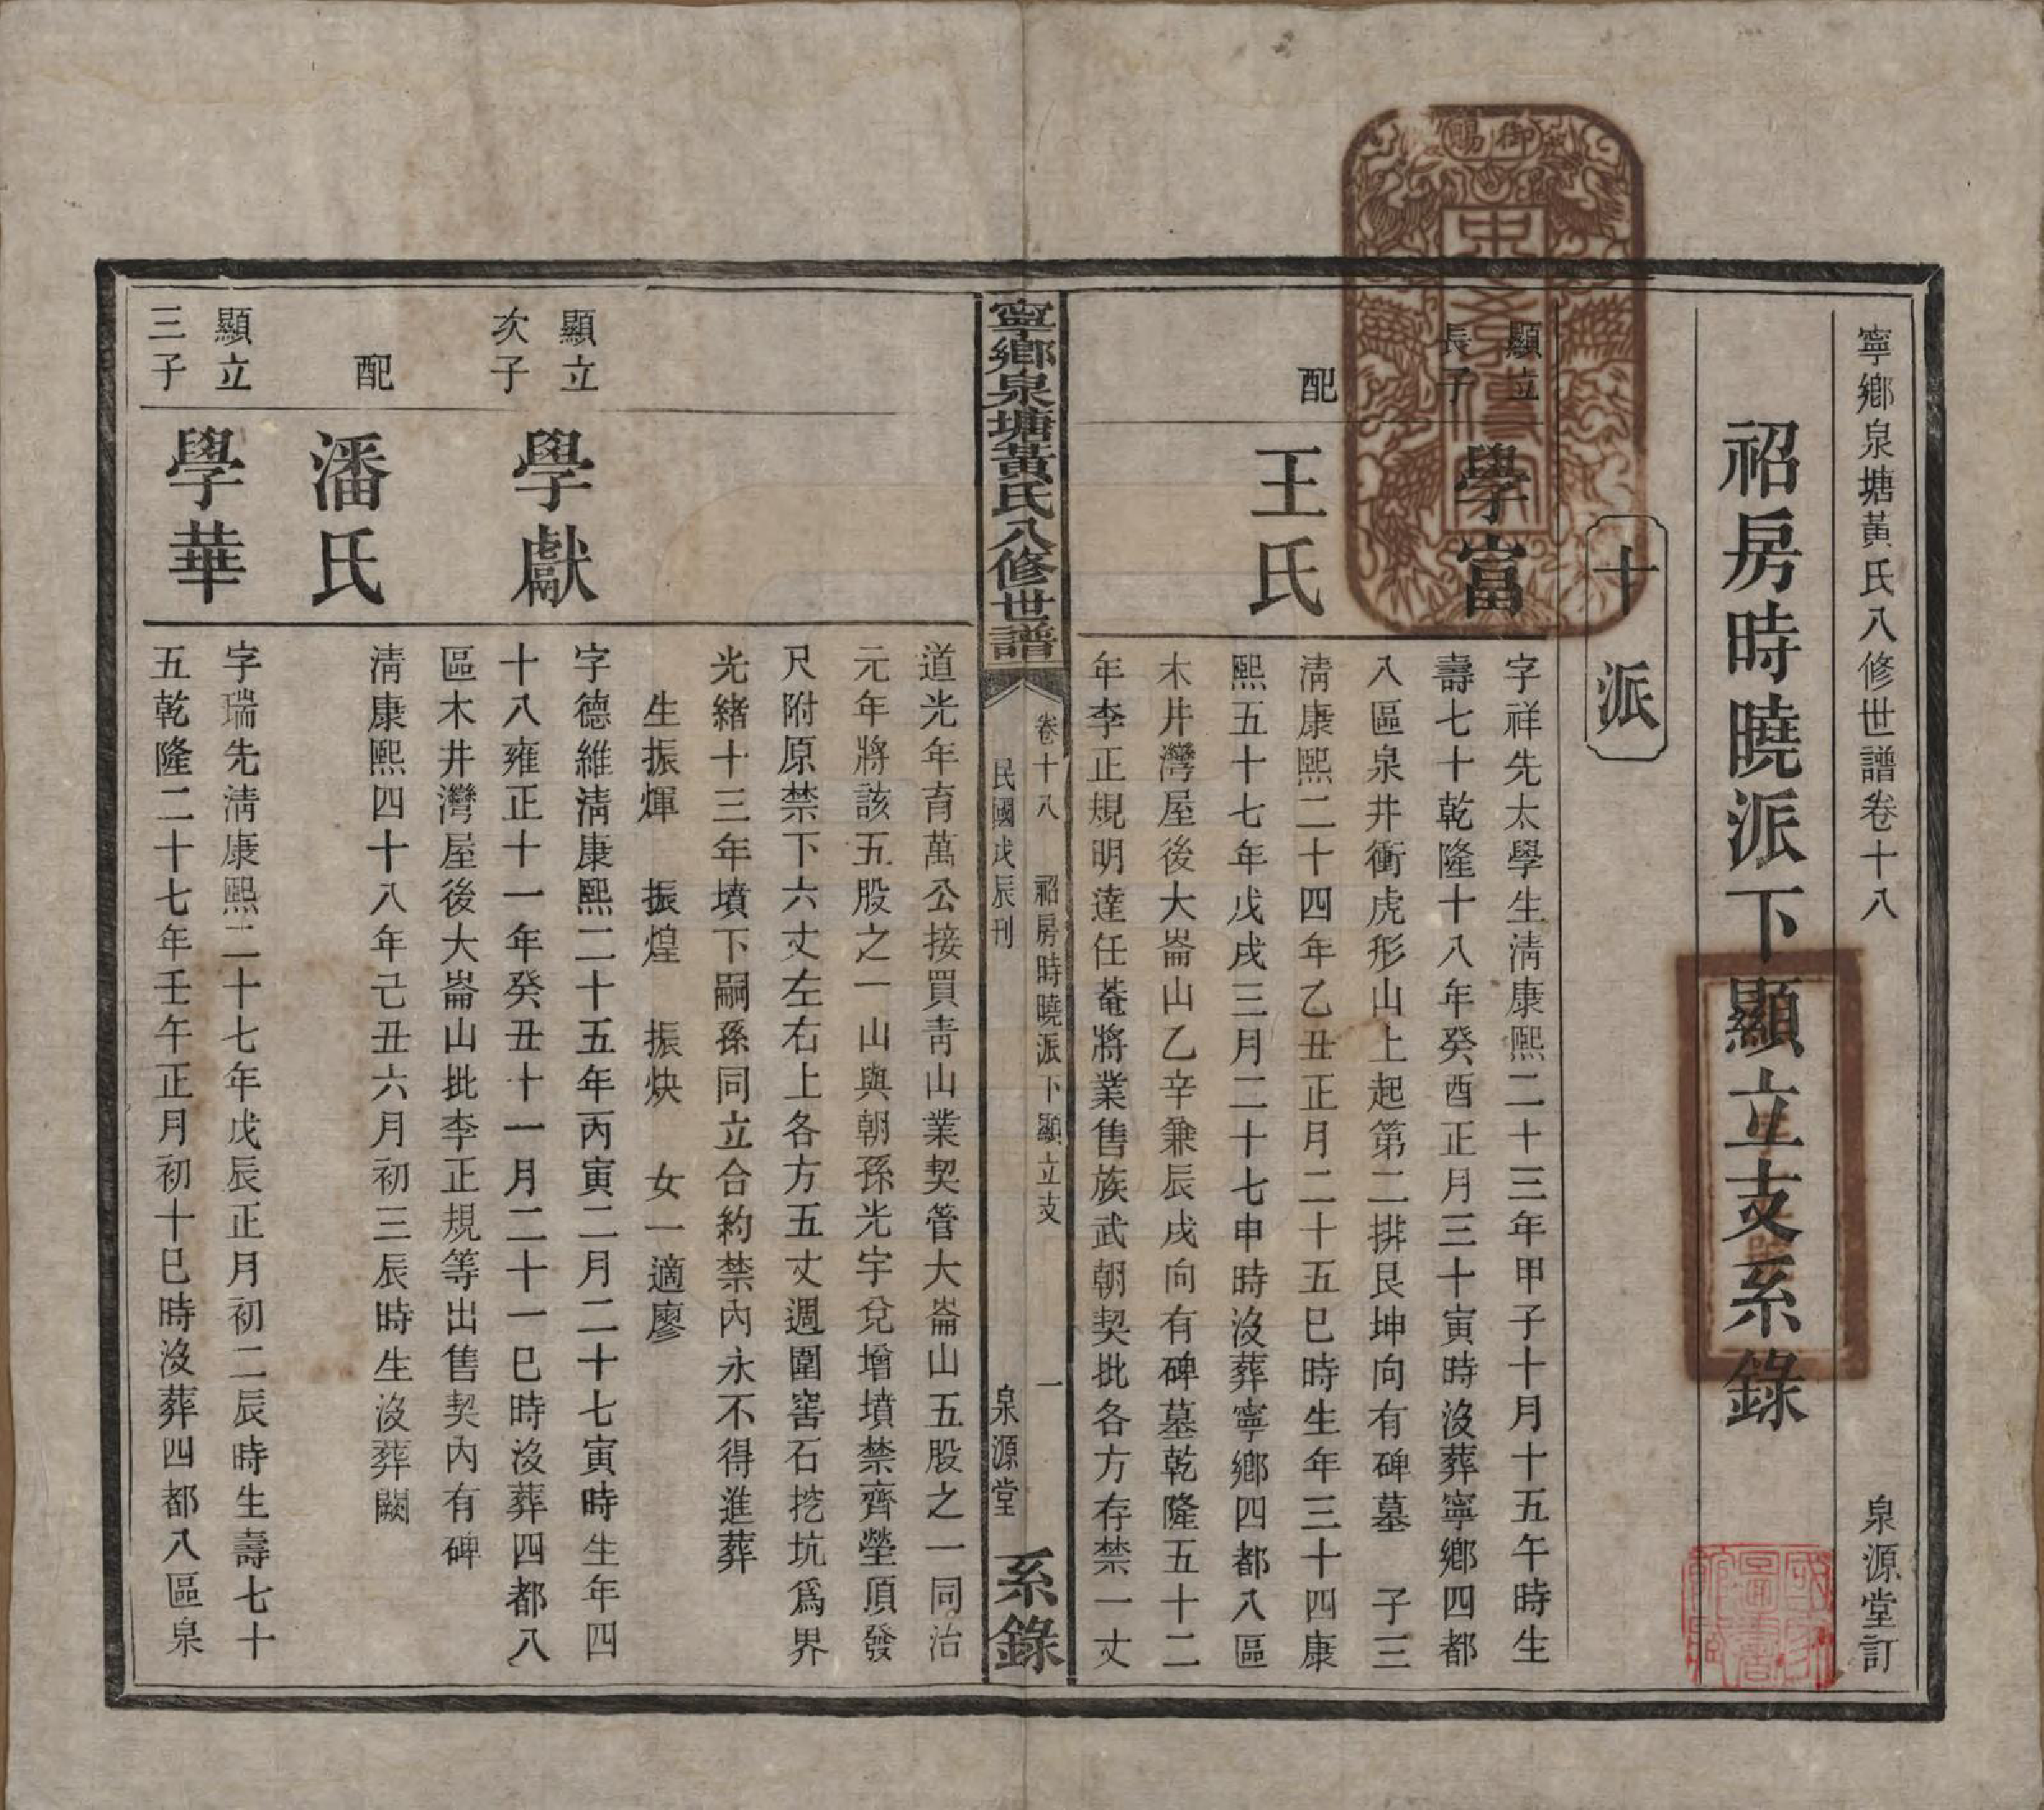 寧鄉泉塘黃氏八修世譜卷十八 泉源堂訂
祒房時曉派下顯立支系錄
十派
顯立
長子
學富
字祥先太學生淸康熙二十三年甲子十月十五午時生
壽七十乾隆十八年癸酉正月三十寅時沒葬寧鄉四都
八區泉井衝虎形山上起第二排艮坤向有碑墓 子三
配
王氏
淸康熙二十四年乙丑正月二十五巳時生年三十四康
熙五十七年戊戌三月二十七申時沒葬寧鄉四都八區
木井灣屋後大崙山乙辛兼辰戌向有碑墓乾隆五十二
年李正規明達任菴將業售族武朝契批各方存禁一丈
寧鄉泉塘黃氏八修世譜
卷十八 祒房時曉派下顯立支 一
民國戊辰刊 泉源堂
系錄
道光年育萬公接買靑山業契管大崙山五股之一同治
元年將該五股之一山與朝孫光宇兌增墳禁齊塋頂發
尺附原禁下六丈左右上各方五丈週圍窖石挖坑爲界
光緒十三年墳下嗣孫同立合約禁內永不得進葬
生振煇 振煌 振炔 女一適廖
顯立
次子
學獻
字德維淸康熙二十五年丙寅二月二十七寅時生年四
十八雍正十一年癸丑十一月二十一巳時沒葬四都八
區木井灣屋後大崙山批李正規等出售契內有碑
配
潘氏
淸康熙四十八年己丑六月初三辰時生沒葬闕
顯立
三子
學華
字瑞先淸康熙二十七年戊辰正月初二辰時生壽七十
五乾隆二十七年壬午正月初十巳時沒葬四都八區泉
御賜